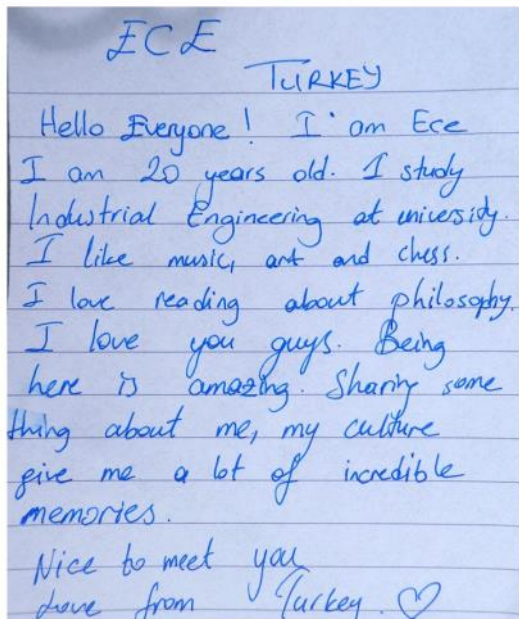 ECE
TURKEY
Hello Everyone! I'am Ece
I am 20 years old. I study
Industrial Engineering at university.
I like music, art and chess.
I love reading about philosophy.
I love you guys. Being
here is amazing. Sharing some
thing about me, my culture
give me a lot of incredible
memories.
Nice to meet you
Love from Turkey. ♡